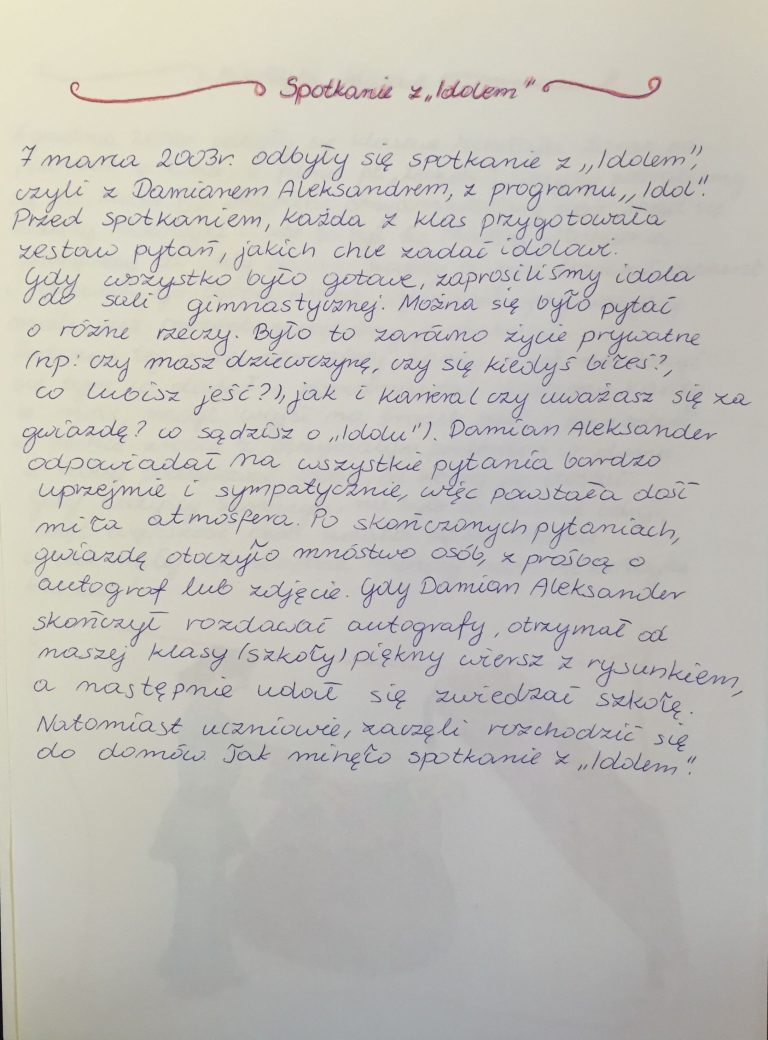 Spotkanie z „Idolem"
7 marca 2003r. odbyły się spotkanie z „Idolem",
czyli z Damianem Aleksandrem, z programu „Idol".
Przed spotkaniem, każda z klas przygotowała
zestaw pytań, jakich chce zadać idolowi.
Gdy wszystko było gotowe, zaprosiliśmy idola
do sali gimnastycznej. Można się było pytać
o różne rzeczy. Było to zarówno życie prywatne
(np: czy masz dziewczynę, czy się kiedyś biłeś?,
co lubisz jeść?), jak i kariera (czy uważasz się za
gwiazdę? co sądzisz o „Idolu"). Damian Aleksander
odpowiadał na wszystkie pytania bardzo
uprzejmie i sympatycznie, więc powstała dość
miła atmosfera. Po skończonych pytaniach,
gwiazdę otoczyło mnóstwo osób, z prośbą o
autograf lub zdjęcie. Gdy Damian Aleksander
skończył rozdawać autografy, otrzymał od
naszej klasy (szkoły) piękny wiersz z rysunkiem,
a następnie udał się zwiedzać szkołę.
Natomiast uczniowie, zaczęli rozchodzić się
do domów. Tak minęło spotkanie z „Idolem".